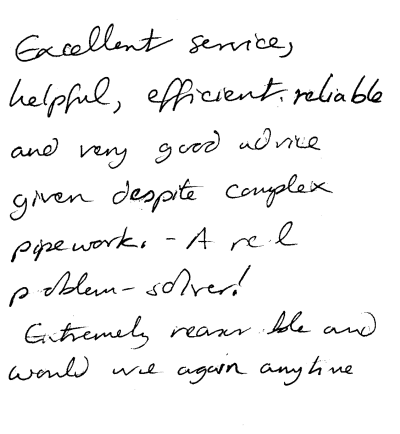 Excellent service,
helpful, efficient, reliable
and very good advice
given despite complex
pipework. - A real
problem-solver!
Extremely reasonable and
would use again anytime